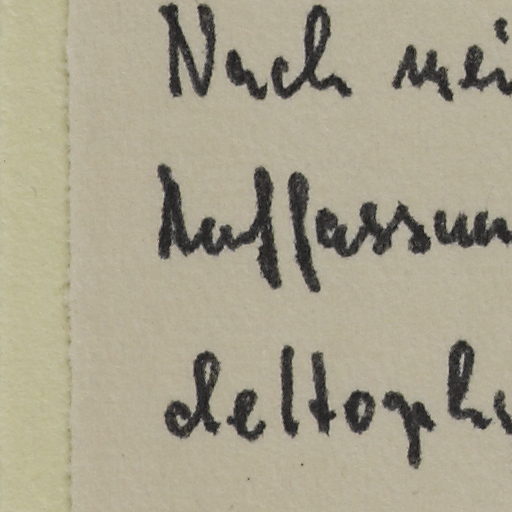 Nach mei
Auffassun
deltoph